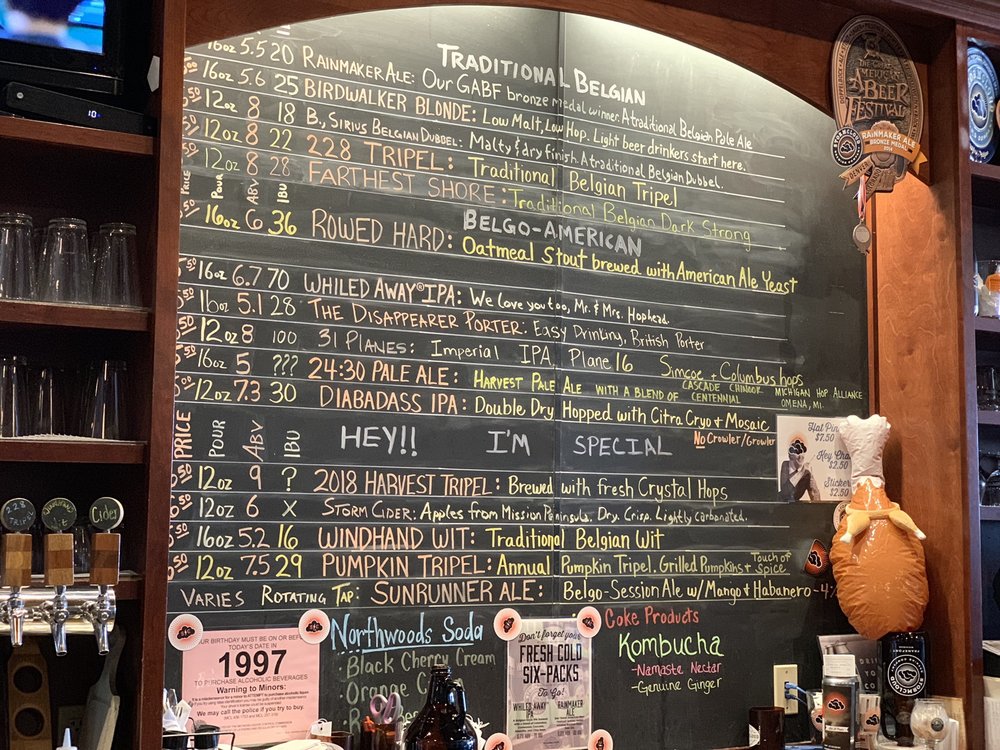 TRADITIONAL BELGIAN
16oz 5.5 20 RAINMAKER ALE: Our GABF bronze medal winner. A traditional Belgian Pale Ale
16oz 5.6 25 BIRDWALKER BLONDE: Low Malt, Low Hop. Light beer drinkers start here.
12oz 8 18 B., SIRIUS BELGIAN DUBBEL: Malty & dry finish. A traditional Belgian Dubbel.
12oz 8 22 228 TRIPEL: Traditional Belgian Tripel
12oz 8 28 FARTHEST SHORE: Traditional Belgian Dark Strong
PRICE POUR ABV IBU
BELGO-AMERICAN
50 16oz 6 36 ROWED HARD: Oatmeal Stout brewed with American Ale Yeast
50 16oz 6.7 70 WHILED AWAY® IPA: We love you too, Mr. & Mrs. Hophead.
50 16oz 5.1 28 THE DISAPPEARER PORTER: Easy Drinking, British Porter
50 12oz 8 100 31 PLANES: Imperial IPA Plane 16 Simcoe + Columbus hops
50 16oz 5 ??? 24:30 PALE ALE: HARVEST PALE ALE WITH A BLEND OF CASCADE CHINOOK CENTENNIAL MICHIGAN HOP ALLIANCE OMENA, MI.
50 12oz 7.3 30 DIABADASS IPA: Double Dry Hopped with Citra Cryo & Mosaic
PRICE POUR ABV IBU
HEY!! I'M SPECIAL
No Crowler/Growler
50 12oz 9 ? 2018 HARVEST TRIPEL: Brewed with fresh Crystal Hops
50 12oz 6 X STORM CIDER: Apples from Mission Peninsula. Dry. Crisp. Lightly carbonated.
50 16oz 5.2 16 WINDHAND WIT: Traditional Belgian Wit
50 12oz 7.5 29 PUMPKIN TRIPEL: Annual Pumpkin Tripel. Grilled Pumpkins & Touch of Spice
VARIES ROTATING TAP: SUNRUNNER ALE: Belgo-Session Ale w/ Mango & Habanero - 4%
Northwoods Soda
· Black Cherry Cream
· Orange
Coke Products
Kombucha
- Namaste Nectar
- Genuine Ginger
YOUR BIRTHDAY MUST BE ON OR BEFORE
TODAY'S DATE IN
1997
TO PURCHASE ALCOHOLIC BEVERAGES
Warning to Minors:
We may call the police if you try to buy.
Don't forget your
FRESH COLD
SIX-PACKS
To Go!
WHILED AWAY
IPA
RAINMAKER
ALE
Hat Pin
$7.50
Key Cha
$2.50
Sticker
$2.50
THE GREAT
AMERICAN
BEER
FESTIVAL
STORMCLOUD
RAINMAKER ALE
BRONZE MEDAL
2016
DENVER
COLORADO
228
TRIPEL
Cider
10